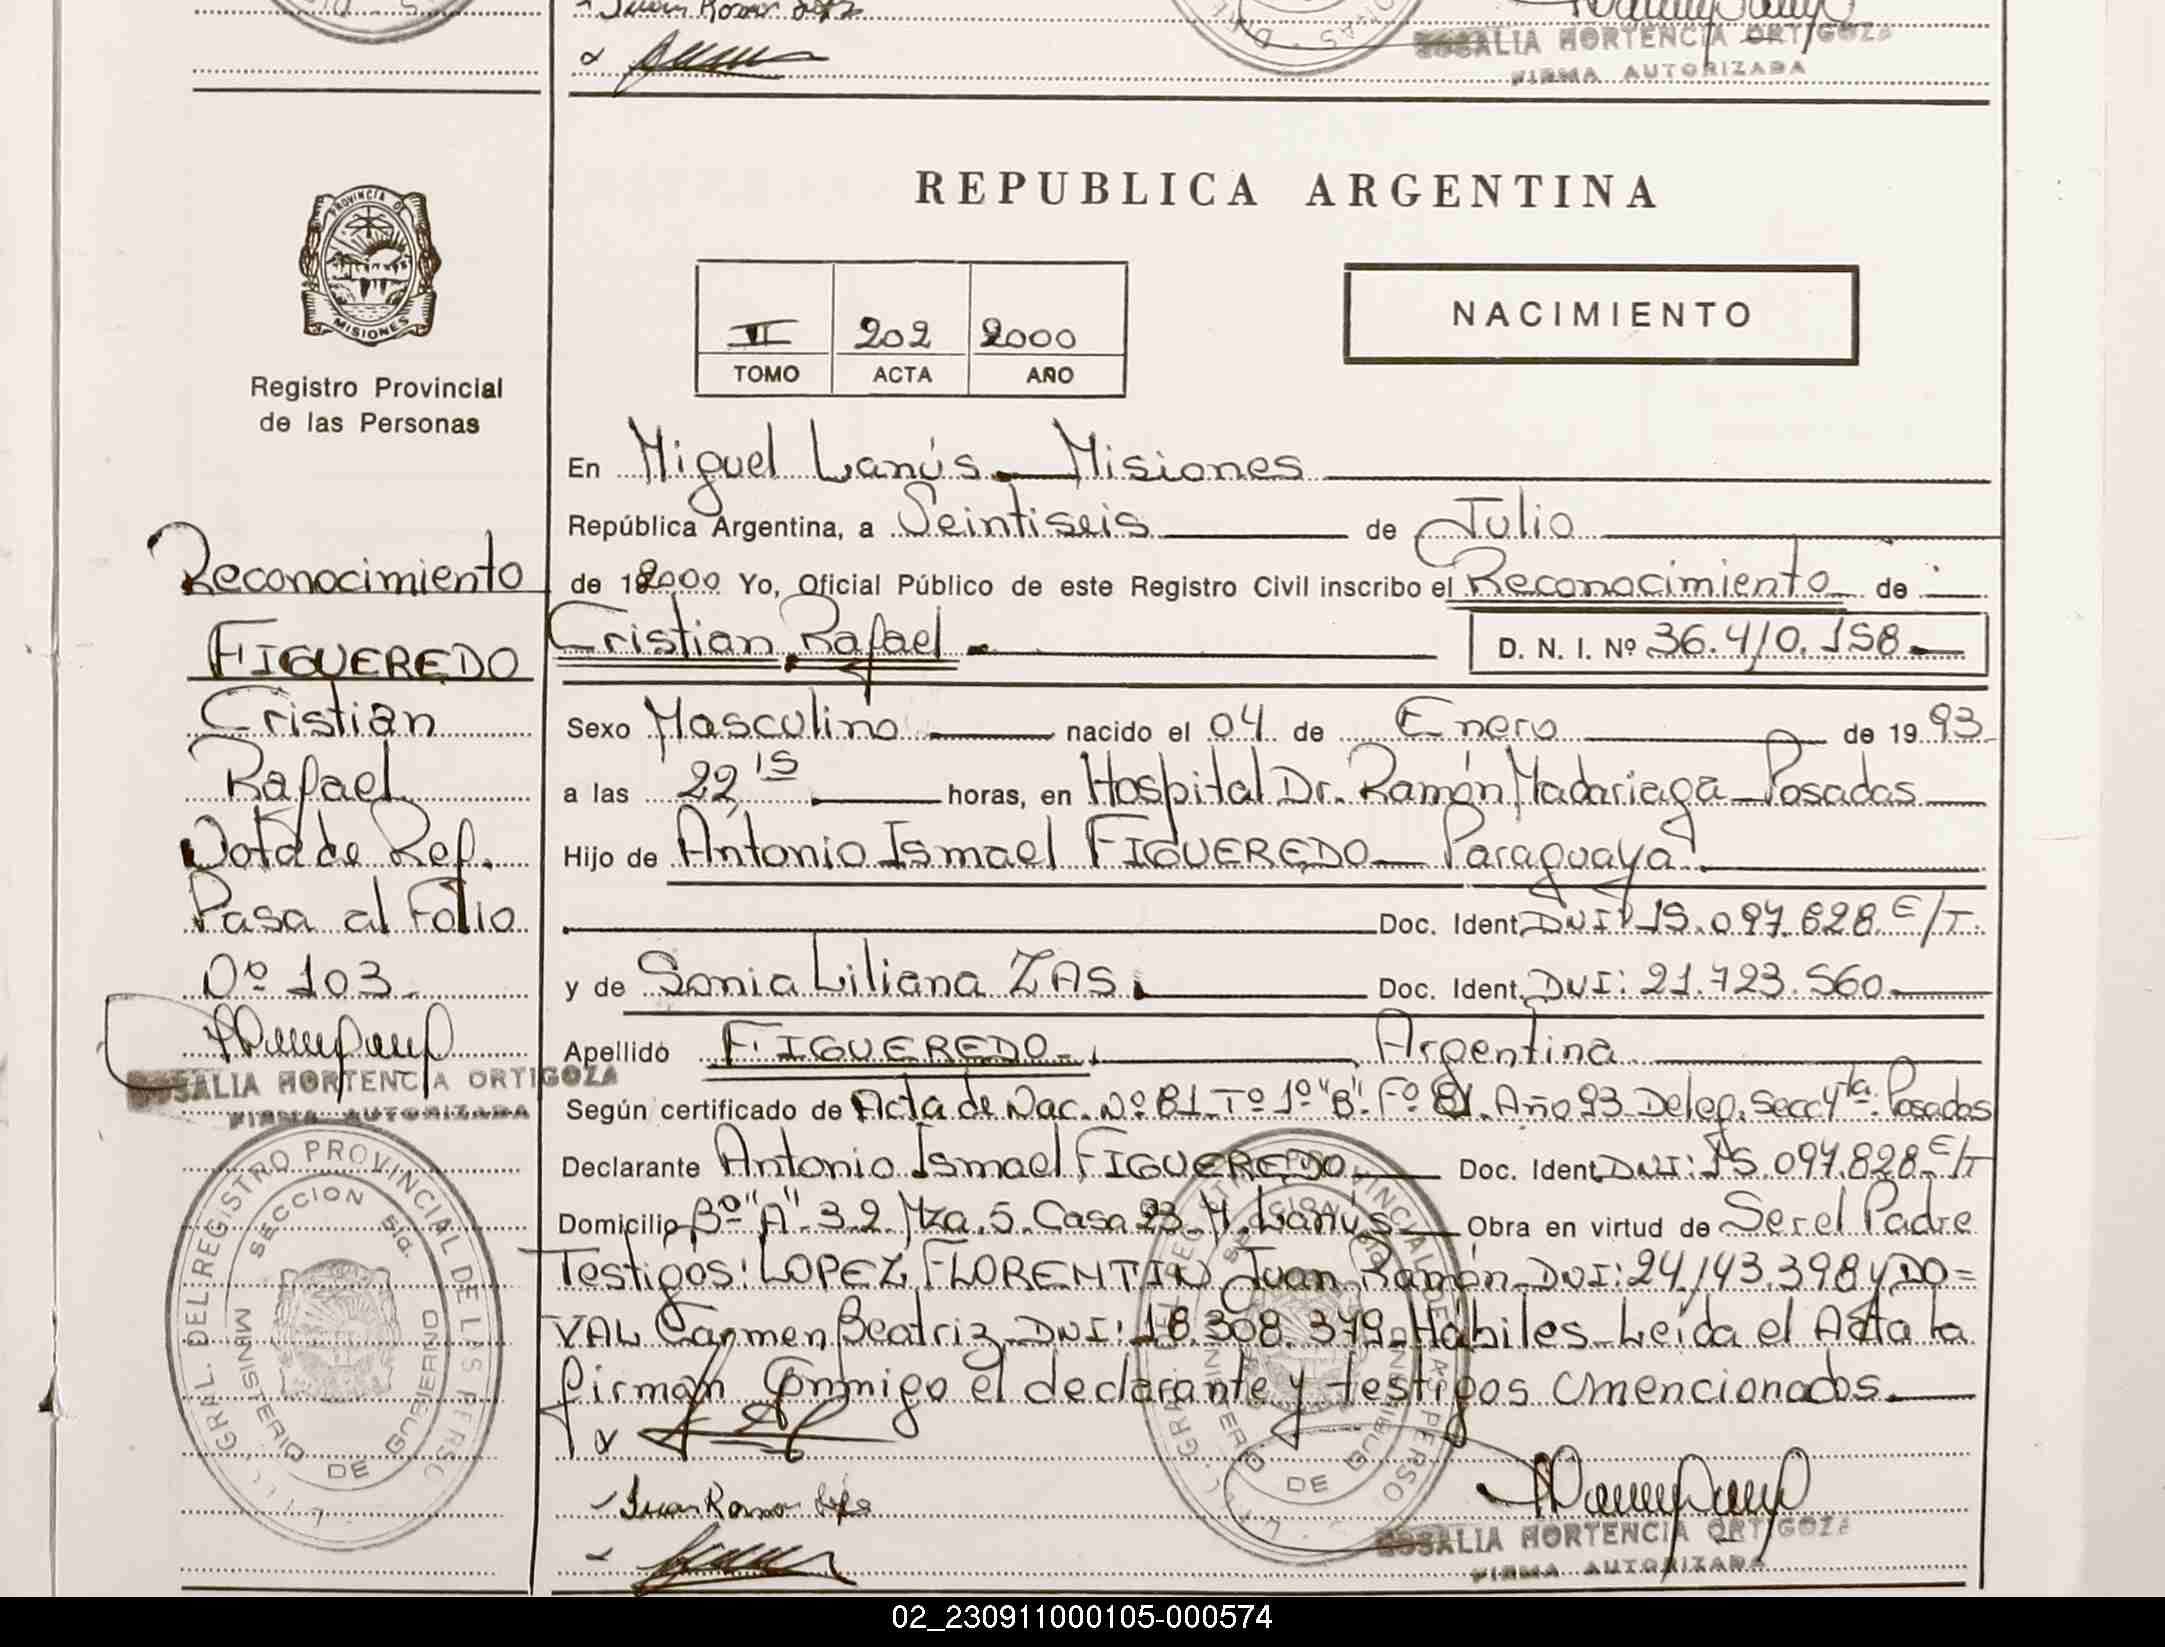 Juan Ramon
ROSALIA HORTENCIA ORTIGOZA
FIRMA AUTORIZADA
PROVINCIA DE
MISIONES
Registro Provincial
de las Personas
REPUBLICA ARGENTINA
VI 202 2000
TOMO ACTA AÑO
NACIMIENTO
En Miguel Lanús - Misiones
República Argentina, a Veintiseis de Julio
de 2000 Yo, Oficial Público de este Registro Civil inscribo el Reconocimiento de
Cristian Rafael D. N. I. Nº 36.410.158
Sexo Masculino nacido el 04 de Enero de 1993
a las 22 15 horas, en Hospital Dr. Ramón Madariaga - Posadas
Hijo de Antonio Ismael FIGUEREDO - Paraguaya
Doc. Ident. DNI: 15.097.828 E/T.
y de Sonia Liliana ZAS. Doc. Ident. DNI: 21.723.560
Apellido FIGUEREDO - Argentina
Según certificado de Acta de Nac. Nº 81 - Tº 1º "B". Fº 81. Año 93 Deleg. Secc 4ta. Posadas
Declarante Antonio Ismael FIGUEREDO Doc. Ident. DNI: 15.097.828 E/T
Domicilio Bº "A" 3.2 Mza. 5. Casa 23 M. Lanús Obra en virtud de Ser el Padre
Testigos: LOPEZ FLORENTIN Juan Ramón DNI: 24.143.398 y DO=
VAL Carmen Beatriz DNI: 18.308.379 Hábiles - Leída el Acta la
firman Conmigo el declarante y testigos mencionados.
Juan Ramon
ROSALIA HORTENCIA ORTIGOZA
FIRMA AUTORIZADA
Reconocimiento
FIGUEREDO
Cristian
Rafael
Nota de Ref.
Pasa al Folio
Nº 103
ROSALIA HORTENCIA ORTIGOZA
FIRMA AUTORIZADA
GRAL. DEL REGISTRO PROVINCIAL DE LAS PERSO
SECCION 5ta.
MINISTERIO DE GOBIERNO
02_230911000105-000574